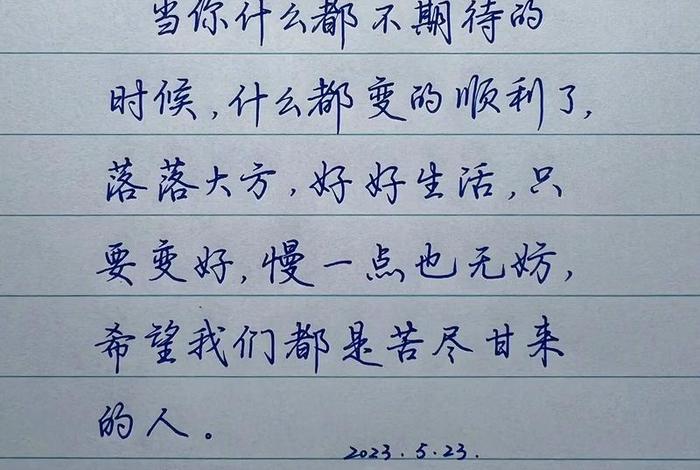 当你什么都不期待的
时候,什么都变的顺利了,
落落大方,好好生活,只
要变好,慢一点也无妨,
希望我们都是苦尽甘来
的人。
2023.5.23.